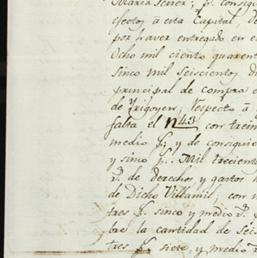 Maria Ferrer; p.r consig
efectos à esta Capital, de
por haver entregado en e
Ocho mil ciento quarent
sinco mil seiscientos d
principal de compra e
de Yrigoyen, respecto à
falta el nº 43 con trein
medio p.s; y de consiguie
y sinco p.s. Mil trecient
r.s de derechos y gastos h
de Dicho Villamil, con n
tres p.s sinco y medio r.s y
bre la cantidad de seis
tres p.s siete, y medio r